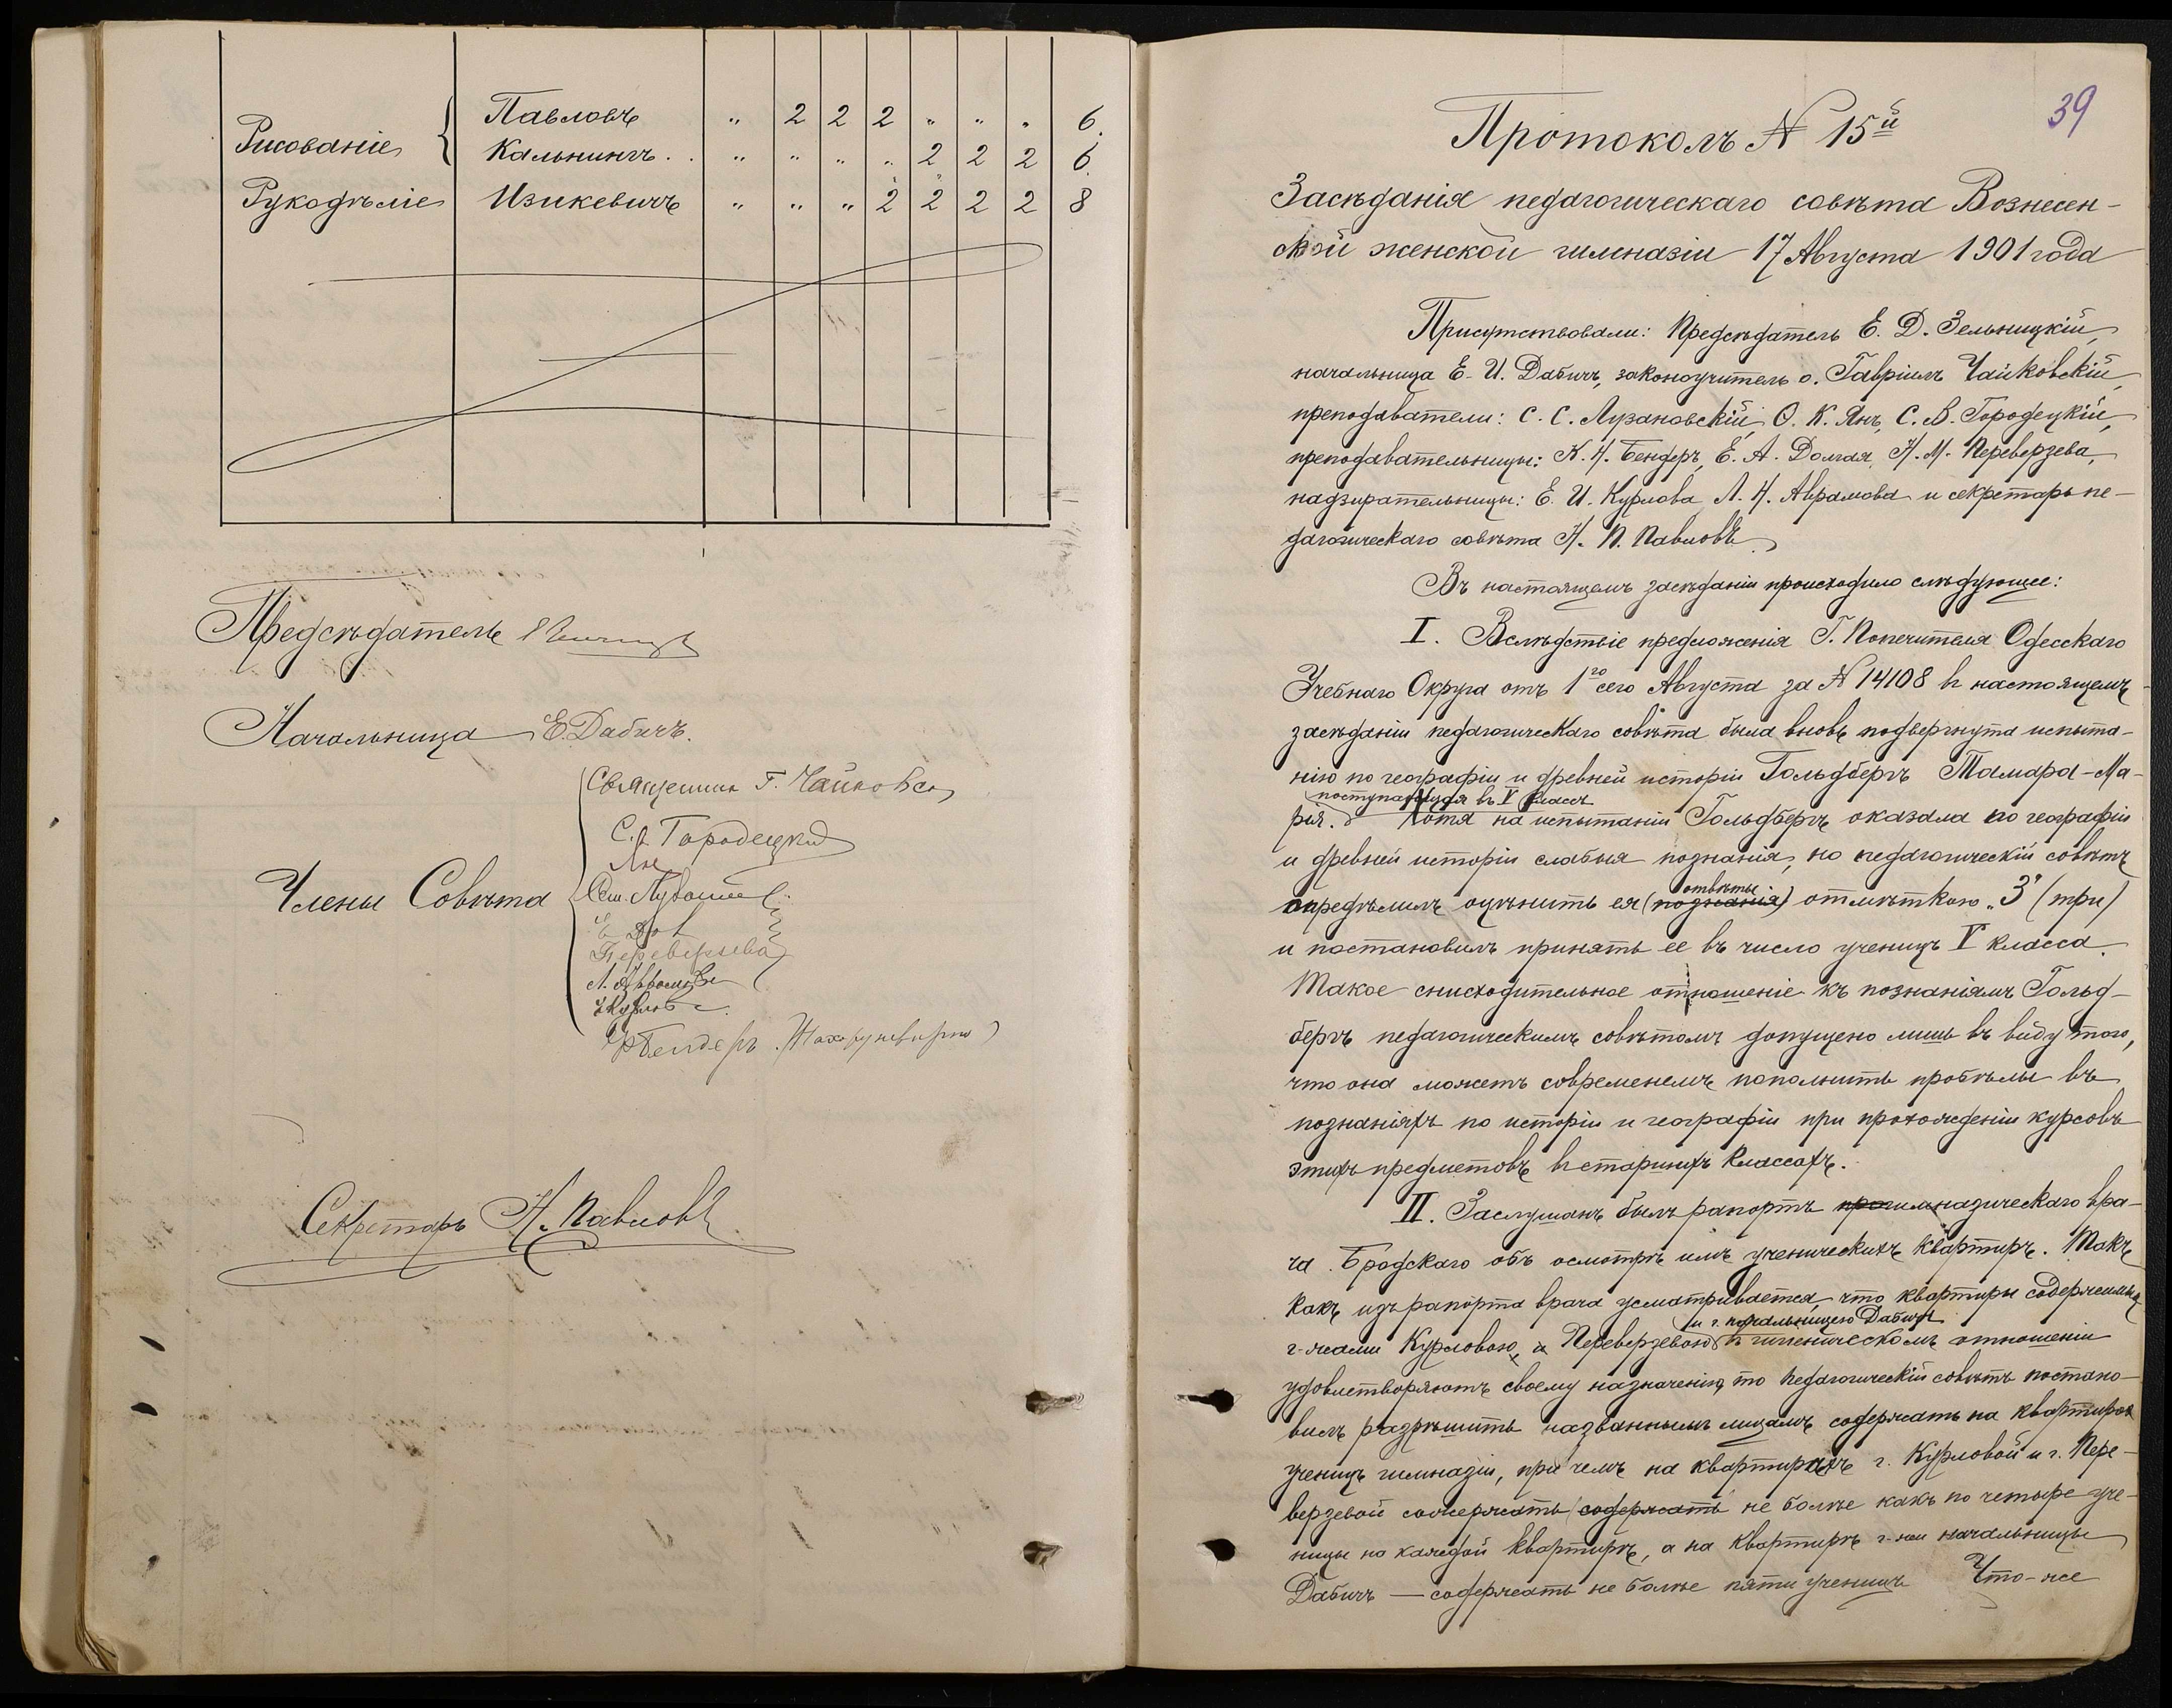 Рисованіе Павловъ „ 2 2 2 „ „ „ 6
Кальнингъ „ „ „ „ 2 2 2 6
Рукодѣліе Изикевичъ „ „ „ 2 2 2 2 8
Предсѣдатель
Начальница Е. Дабичъ.
Священник Г. Чайковск
С. В. Городецкій
Янъ
Члены Совѣта
Переверзева
Л. Аврамова
Курлова
Бендеръ
Секретарь Н. Павловъ
39
Протоколъ № 15й
Засѣданія педагогическаго совѣта Вознесен-
ской женской гимназіи 17 Августа 1901 года
Присутствовали: Предсѣдатель Е. Д. Зельницкій,
начальница Е. И. Дабичъ, законоучитель о. Гавріилъ Чайковскій,
преподаватели: С. С. Лузановскій, О. К. Янъ, С. В. Городецкій,
преподавательницы: К. Н. Бендеръ, Е. А. Долгая, Н. М. Переверзева,
надзирательницы: Е. И. Курлова, Л. Н. Аврамова и секретарь пе-
дагогическаго совѣта Н. П. Павловъ.
Въ настоящемъ засѣданіи происходило слѣдующее:
I. Вслѣдствіе предложенія Г. Попечителя Одесскаго
Учебнаго Округа отъ 1го сего Августа за № 14108 в настоящемъ
засѣданіи педагогическаго совѣта была вновь подвергнута испыта-
нію по географіи и древней исторіи Гольдбергъ Тамара-Ма-
поступающая въ V классъ
рія. Хотя на испытаніи Гольдбергъ оказала по географіи
и древней исторіи слабыя познанія, но педагогическій совѣтъ
отвѣты
опредѣлилъ оцѣнить ея (познанія) отмѣткою „3" (три)
и постановилъ принять ее въ число ученицъ V класса.
Такое снисходительное отношеніе къ познаніямъ Гольд-
бергъ педагогическимъ совѣтомъ допущено лишь въ виду того,
что она можетъ современемъ пополнить пробѣлы въ
познаніяхъ по исторіи и географіи при прохожденіи курсовъ
этихъ предметовъ в старшихъ классахъ.
II. Заслушанъ былъ рапортъ прогимназическаго вра-
ча Бродскаго объ осмотрѣ имъ ученическихъ квартиръ. Такъ
какъ изъ рапорта врача усматривается, что квартиры содержимыя
и г. начальницею Дабичъ
г-жами Курловою, и Переверзевою в гигіеническомъ отношеніи
удовлетворяютъ своему назначенію, то педагогическій совѣтъ постано-
вилъ разрѣшить названнымъ лицамъ содержать на квартирахъ
ученицъ гимназіи, при чемъ на квартирахъ г. Курловой и г. Пере-
верзевой содержать содержать не болѣе какъ по четыре уче-
ницы на каждой квартирѣ, а на квартирѣ г-жи начальницы
Дабичъ — содержать не болѣе пяти ученицъ Что-же